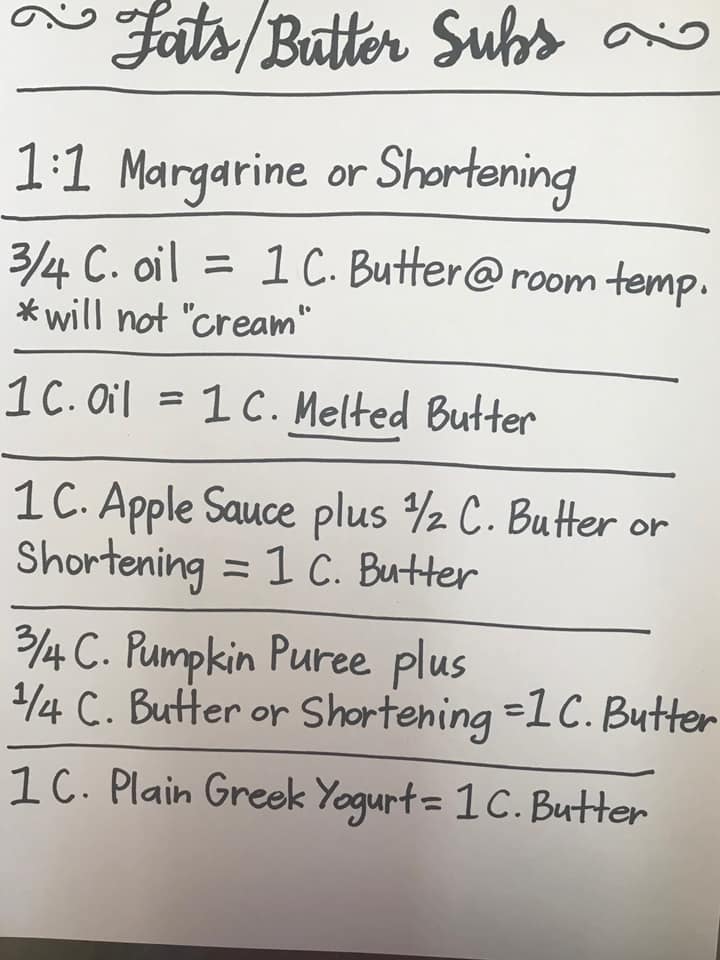 Fats/Butter Subs
1:1 Margarine or Shortening
3/4 C. oil = 1 C. Butter@ room temp.
*will not "cream"
1 C. Oil = 1 C. Melted Butter
1 C. Apple Sauce plus 1/2 C. Butter or
Shortening = 1 C. Butter
3/4 C. Pumpkin Puree plus
1/4 C. Butter or Shortening =1 C. Butter
1 C. Plain Greek Yogurt= 1 C. Butter